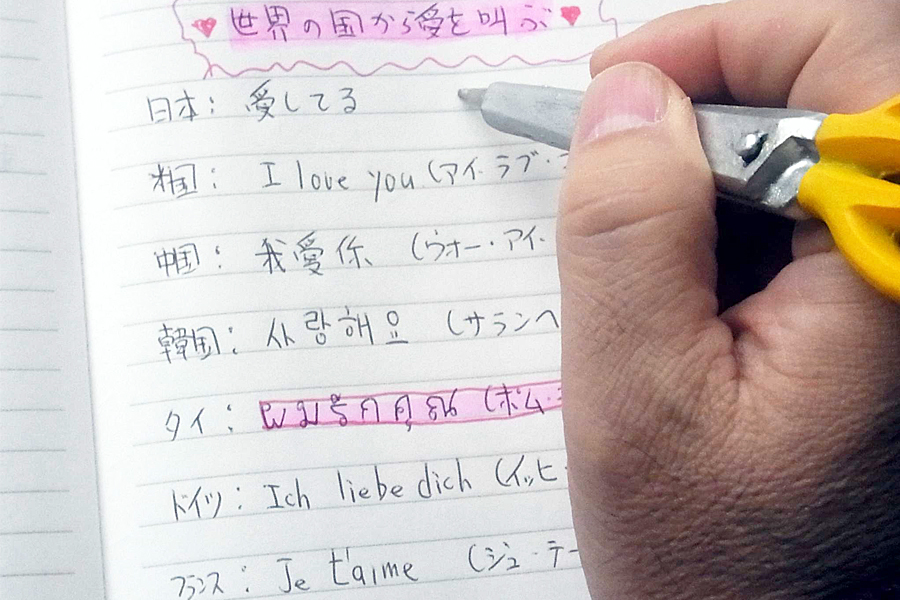 世界の国から愛を叫ぶ
日本: 愛してる
米国: I love you (アイ・ラブ・
中国: 我愛你 (ウォー・アイ・
韓国: 사랑해요 (サランヘ
タイ: ผมรักคุณ (ポム・
ドイツ: Ich liebe dich (イッヒ・
フランス: Je t'aime (ジュ・テー